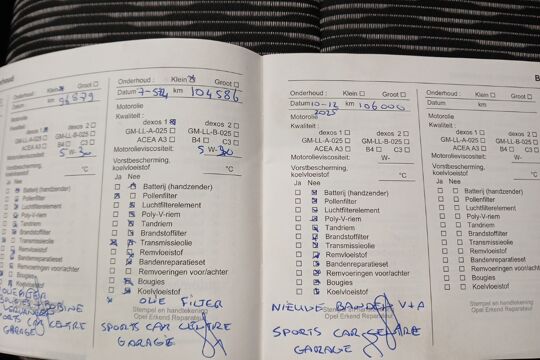 houd
Klein Groot
km 96879
Kwaliteit
dexos 1
GM-LL-A-025 GM-LL-B-025
ACEA A3 B4 C3
Motorolieviscositeit: 5 W-30
Vorstbescherming,
koelvloeistof °C
Ja Nee
Batterij (handzender)
Pollenfilter
Luchtfilterelement
Poly-V-riem
Tandriem
Brandstoffilter
Transmissieolie
Remvloeistof
Bandenreparatieset
Remvoeringen voor/achter
Bougies
Koelvloeistof
OLIE FILTER
SPORTS CAR CENTRE
GARAGE
Onderhoud : Klein Groot
Datum 7-5-24 km 104586
Motorolie
Kwaliteit :
dexos 1
GM-LL-A-025 GM-LL-B-025
ACEA A3 B4 C3
Motorolieviscositeit: 5 W-30
Vorstbescherming,
koelvloeistof °C
Ja Nee
Batterij (handzender)
Pollenfilter
Luchtfilterelement
Poly-V-riem
Tandriem
Brandstoffilter
Transmissieolie
Remvloeistof
Bandenreparatieset
Remvoeringen voor/achter
Bougies
Koelvloeistof
OLIE FILTER
Stempel en handtekening
Opel Erkend Reparateur
SPORTS CAR CENTRE
GARAGE
Onderhoud : Klein Groot
Datum 10-12 km 106000
2025
Motorolie
Kwaliteit :
dexos 1 dexos 2
GM-LL-A-025 GM-LL-B-025
ACEA A3 B4 C3
Motorolieviscositeit: W-
Vorstbescherming,
koelvloeistof °C
Ja Nee
Batterij (handzender)
Pollenfilter
Luchtfilterelement
Poly-V-riem
Tandriem
Brandstoffilter
Transmissieolie
Remvloeistof
Bandenreparatieset
Remvoeringen voor/achter
Bougies
Koelvloeistof
NIEUWE BANDEN V+A
Stempel en handtekening
Opel Erkend Reparateur
SPORTS CAR CENTRE
GARAGE
Onderhoud : Klein Groot
Datum km
Motorolie
Kwaliteit :
dexos 1
GM-LL-A-025
ACEA A3 B4
Motorolieviscositeit:
Vorstbescherming,
koelvloeistof
Ja Nee
Batterij (handzender)
Pollenfilter
Luchtfilterelement
Poly-V-riem
Tandriem
Brandstoffilter
Transmissieolie
Remvloeistof
Bandenreparatieset
Remvoeringen voor/achter
Bougies
Koelvloeistof
Stempel en handtekening
Opel Erkend Reparateur